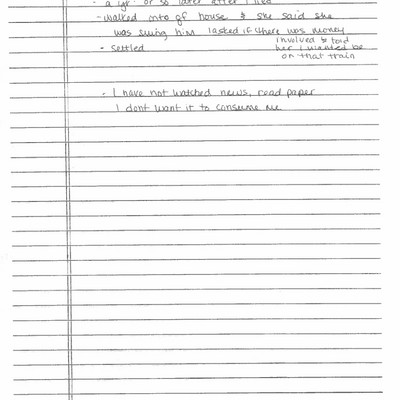 - a yr. or so later after I
- walked into house & she said she
was suing him I asked if there was money
involved & told
- settled her I wanted be
on that train
- I have not watched news, read paper
I dont want it to consume me